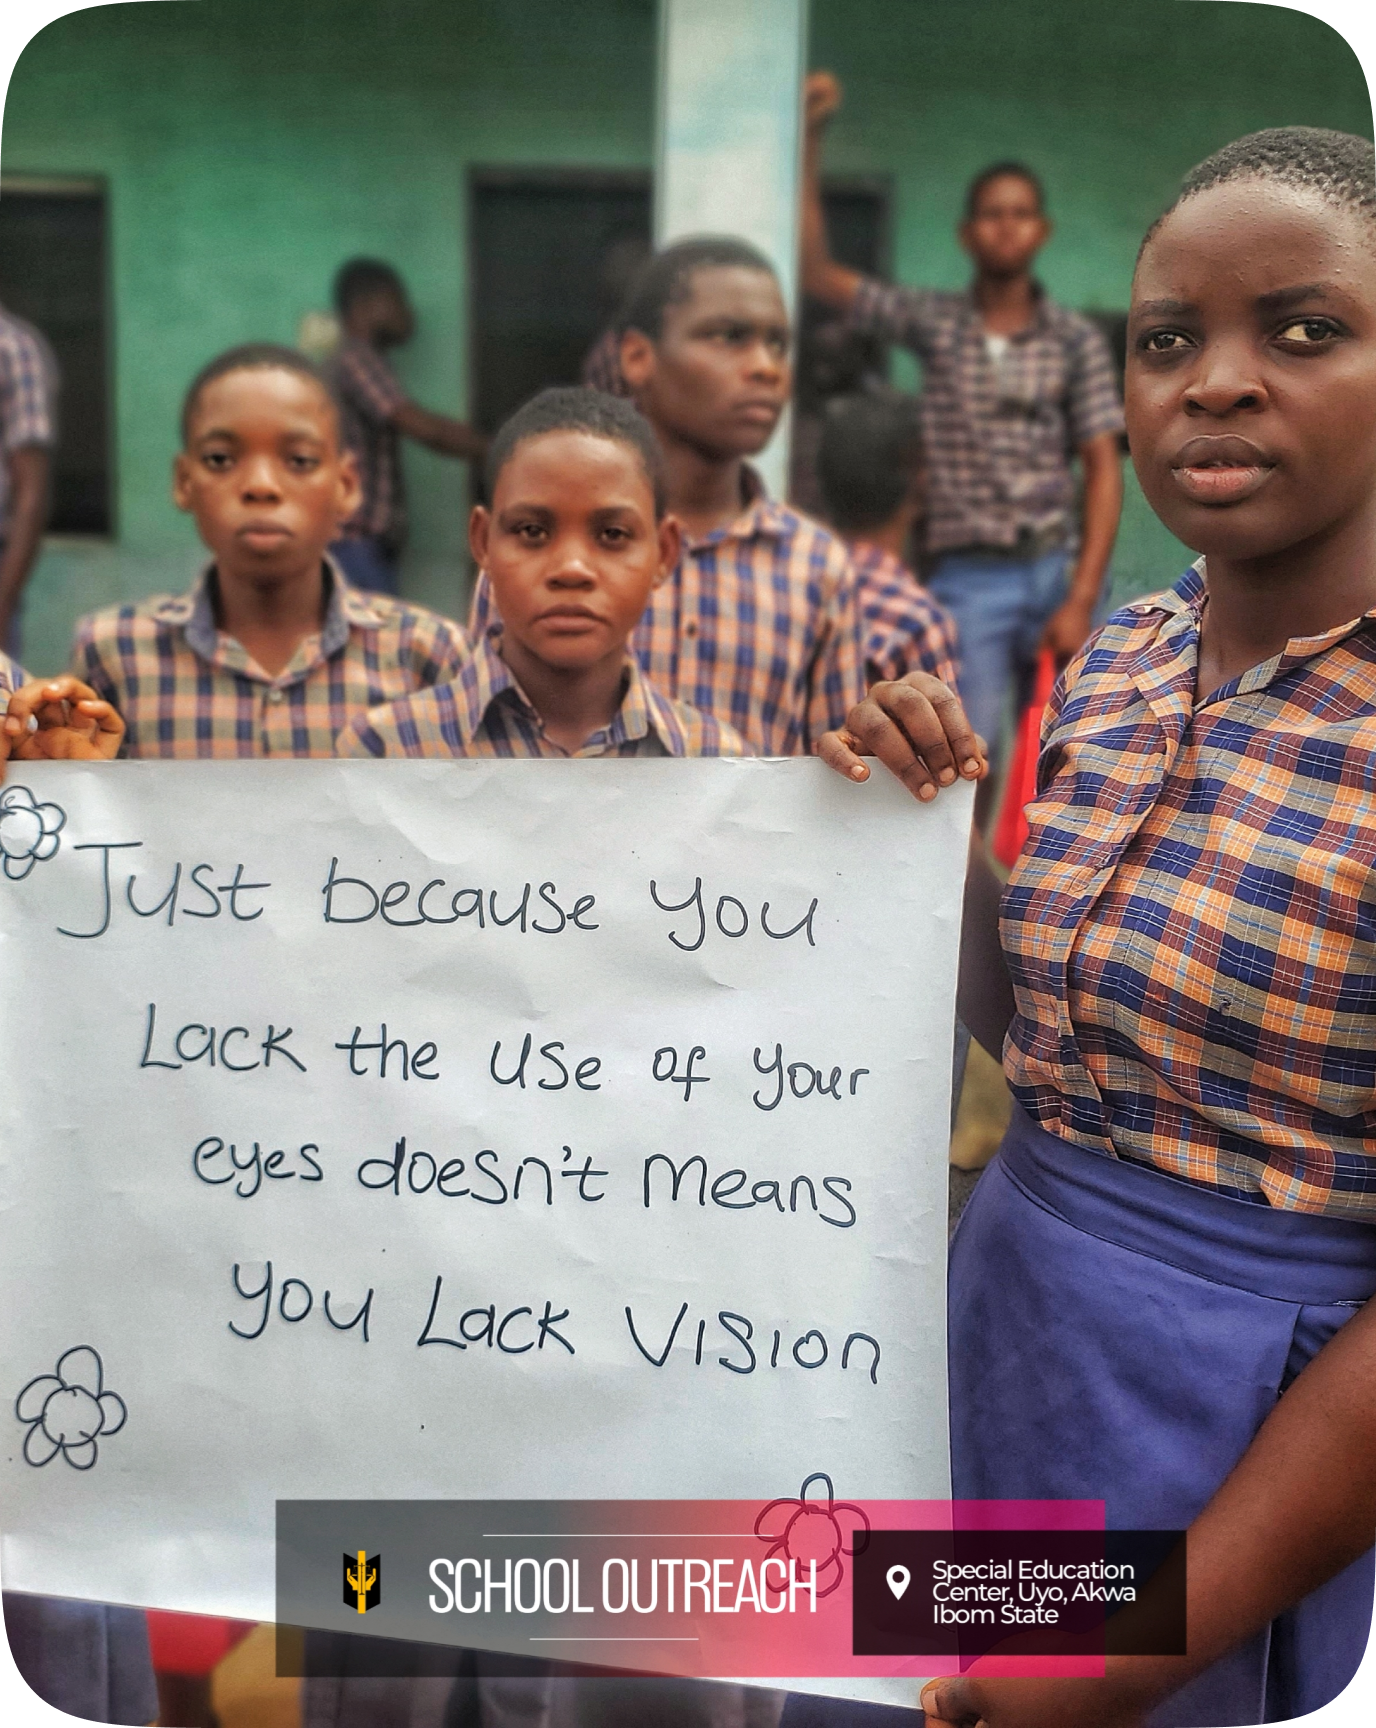 Just because you
Lack the use of your
eyes doesn't means
you Lack Vision
SCHOOL OUTREACH
Special Education
Center, Uyo, Akwa
Ibom State